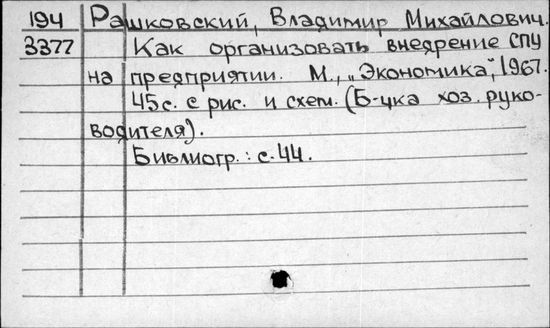 194 Рашковский, Владимир Михайлович.
3377 Как организовать внедрение СПУ
на предприятии. М., „Экономика", 1967.
45 с. с рис. и схем. (Б-чка хоз. руко-
водителя).
Библиогр.: с. 44.